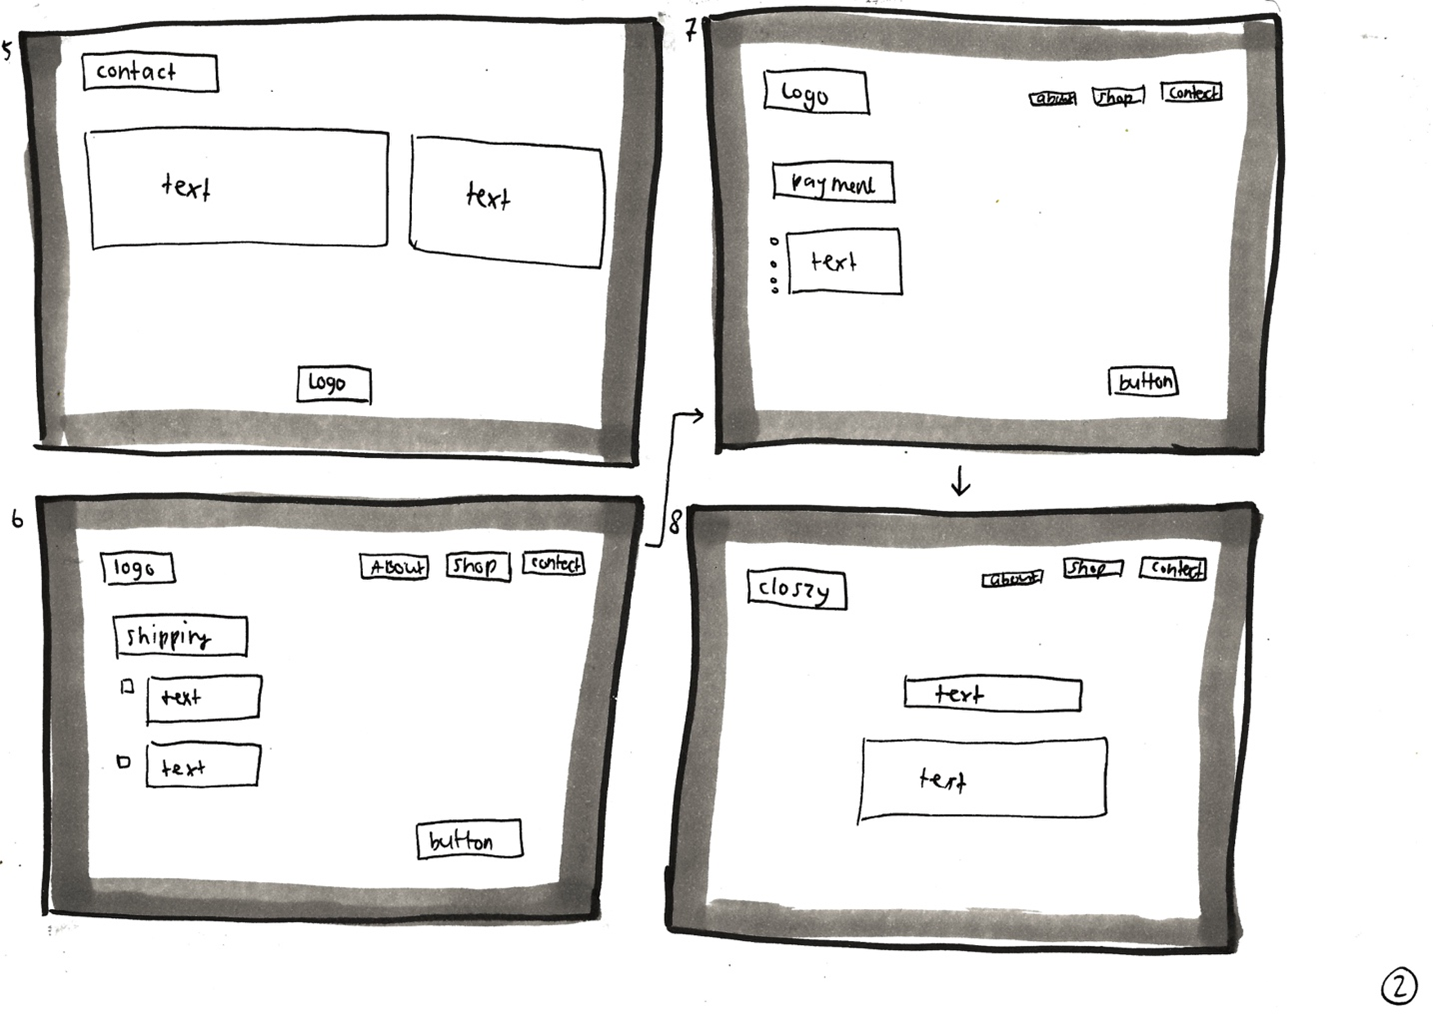 5
contact
text
text
Logo
6
logo
About
shop
contact
shipping
text
text
button
7
Logo
about
shop
contact
payment
text
button
8
closzy
about
shop
contact
text
text
2